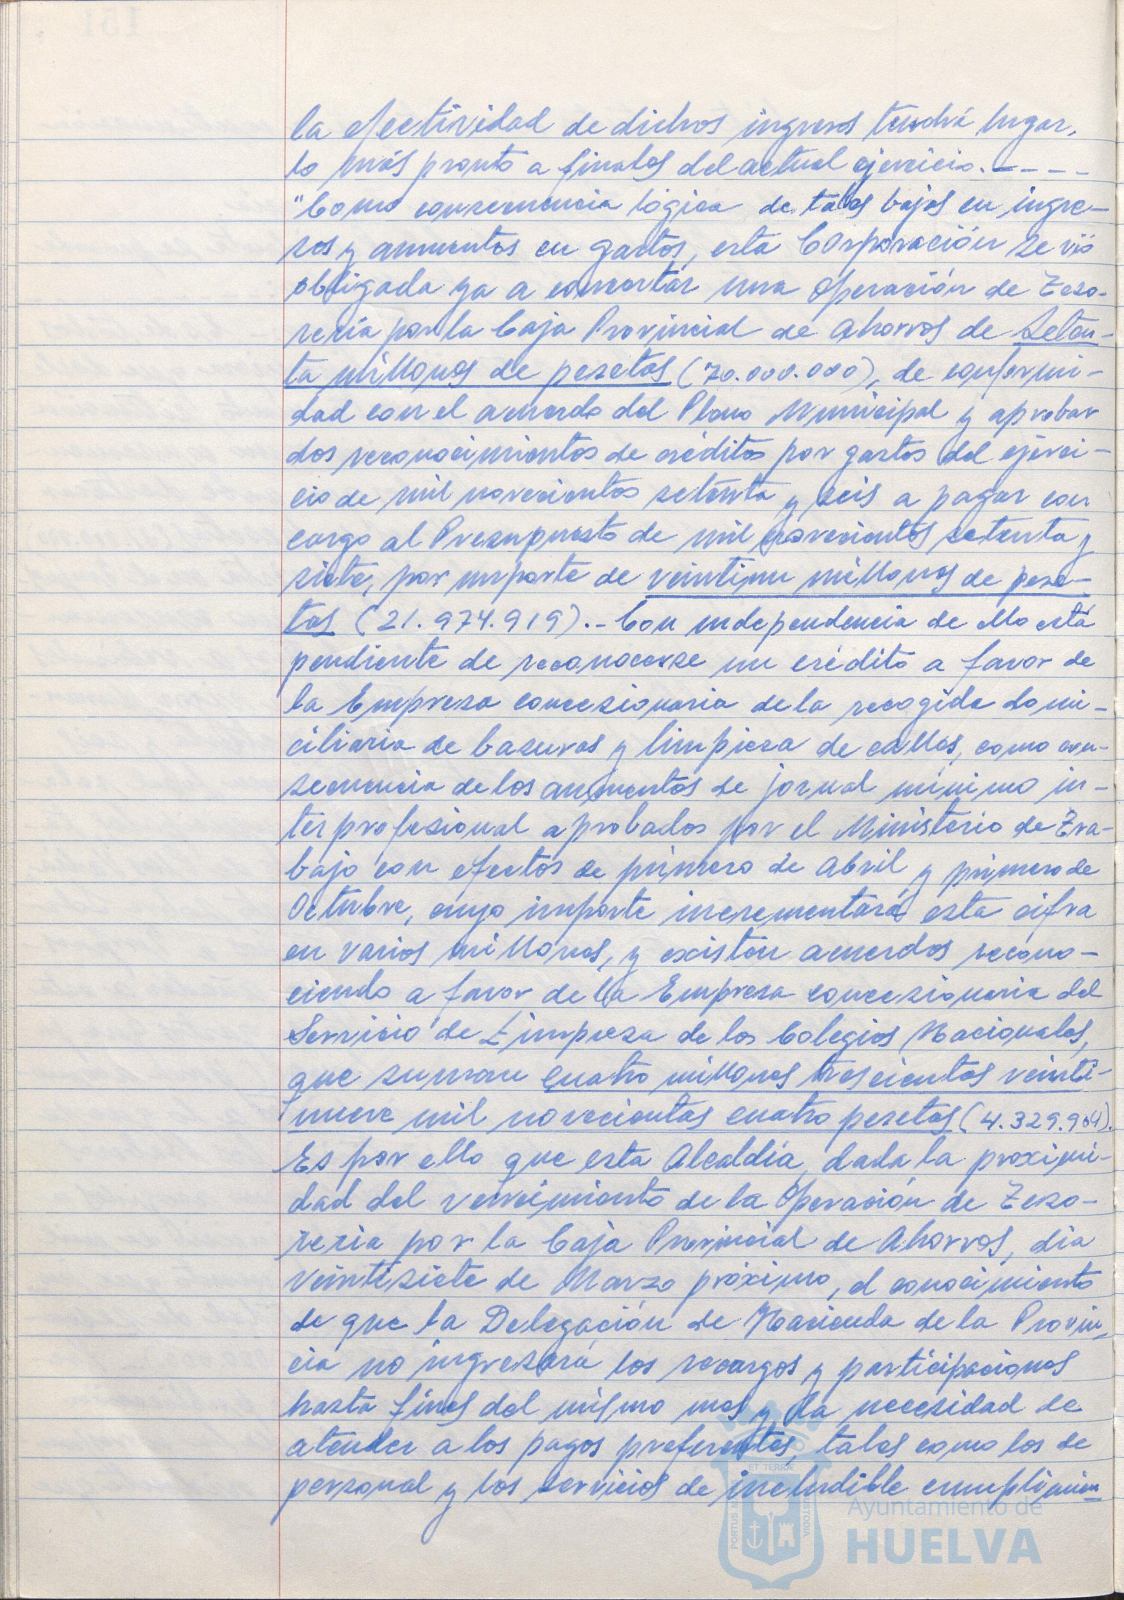 la efectividad de dichos ingresos tendrá lugar,
lo más pronto a finales del actual ejercicio. - - - -
"Como consecuencia lógica de tales bajas en ingre-
sos y aumentos en gastos, esta Corporación se vió
obligada ya a concertar una Operación de Teso-
rería por la Caja Provincial de Ahorros de Seten-
ta millones de pesetas (70.000.000), de conformi-
dad con el acuerdo del Pleno Municipal y aprobar
dos reconocimientos de créditos por gastos del ejerci-
cio de mil novecientos setenta y seis a pagar con
cargo al Presupuesto de mil novecientos setenta y
siete, por importe de veintiun millones de pese-
tas (21.974.919).- Con independencia de ello está
pendiente de reconocerse un crédito a favor de
la Empresa concesionaria de la recogida domi-
ciliaria de basuras y limpieza de calles, como con-
secuencia de los aumentos de jornal mínimo in-
terprofesional aprobados por el Ministerio de Tra-
bajo con efectos de primero de Abril y primero de
Octubre, cuyo importe incrementará esta cifra
en varios millones, y existen acuerdos recono-
ciendo a favor de la Empresa concesionaria del
Servicio de Limpieza de los Colegios Nacionales,
que suman cuatro millones trescientos veinti-
nueve mil novecientas cuatro pesetas (4.329.904).
Es por ello que esta Alcaldía, dada la proximi-
dad del vencimiento de la Operación de Teso-
rería por la Caja Provincial de Ahorros, día
veintisiete de Marzo próximo, el conocimiento
de que la Delegación de Hacienda de la Provin-
cia no ingresará los recargos y participaciones
hasta fines del mismo mes y la necesidad de
atender a los pagos preferentes, tales como los de
personal y los servicios de ineludible cumplimien
Ayuntamiento de
HUELVA